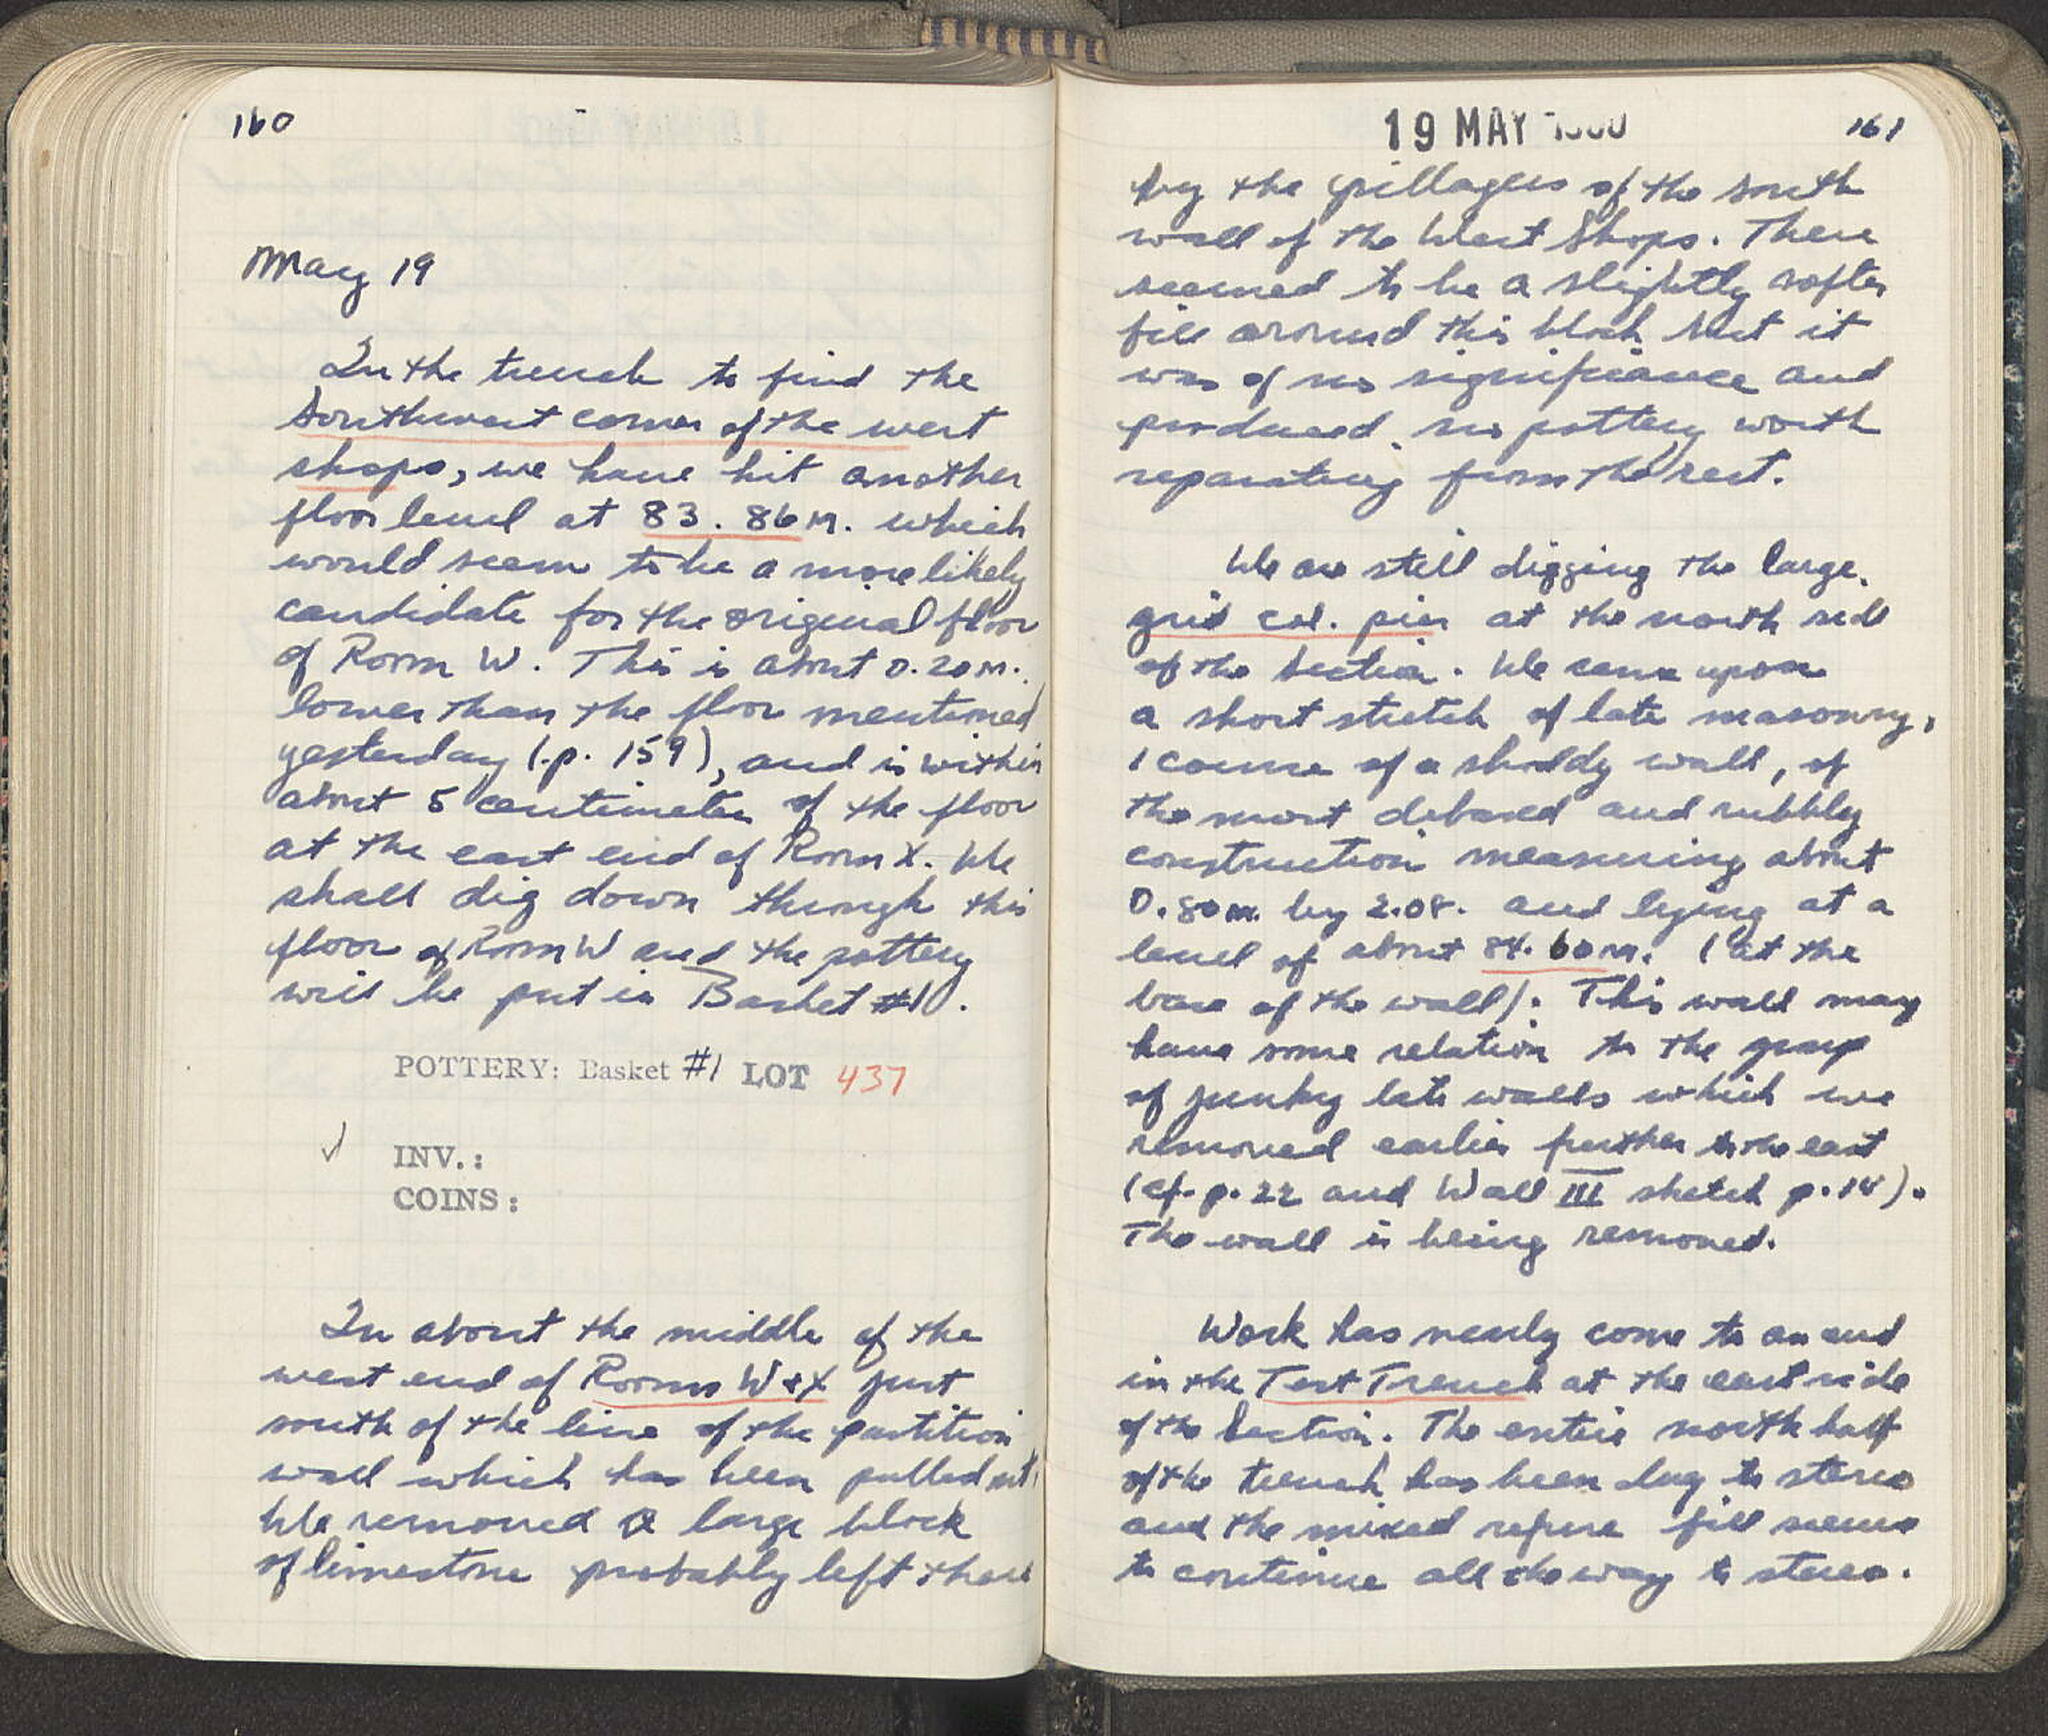 160
May 19
In the trench to find the
Southwest corner of the west
shops, we have hit another
floor level at 83.86 m. which
would seem to be a more likely
candidate for the original floor
of Room W. This is about 0.20 m.
lower than the floor mentioned
yesterday (p. 159), and is within
about 5 centimeters of the floor
at the east end of Room X. We
shall dig down through this
floor of Room W and the pottery
will be put in Basket #1.
POTTERY: Basket #1 LOT 437
✓ INV.:
COINS:
In about the middle of the
west end of Rooms W + X just
south of the line of the partition
wall which has been pulled out,
We removed a large block
of limestone probably left there
19 MAY 161
by the pillagers of the south
wall of the West Shops. There
seemed to be a slightly softer
fill around this block but it
was of no significance and
produced no pottery worth
separating from the rest.
We are still digging the large
grid col. pier at the north side
of the Section. We came upon
a short stretch of late masonry,
1 course of a shoddy wall, of
the most debased and rubbly
construction measuring about
0.80 m. by 2.08. and lying at a
level of about 84.60 m. (at the
base of the wall). This wall may
have some relation to the group
of junky late walls which we
removed earlier further to the east
(cf. p. 22 and Wall III sketch p. 14).
The wall is being removed.
Work has nearly come to an end
in the Test Trench at the east side
of the Section. The entire north half
of the trench has been dug to stereo
and the mixed refuse fill seems
to continue all the way to stereo.